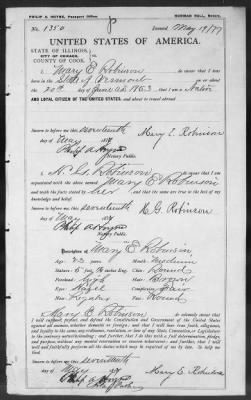 PHILIP A. HOYNE, Passport Officer
NORMAN BULL, Broker.
No. 1350 Issued May 19/77
UNITED STATES OF AMERICA.
STATE OF ILLINOIS,
CITY OF CHICAGO,
COUNTY OF COOK.
I, Mary E Robinson do swear that I was
born in the State of Vermont on the
20th day of June A.D. 1853 that I am a Native
AND LOYAL CITIZEN OF THE UNITED STATES, and about to travel abroad
Sworn to before me this seventeenth
day of May 1877
Philip A Hoyne
Notary Public.
Mary E. Robinson
I, H. G. Robinson do swear that I am
acquainted with the above named Mary E Robinson
and with the facts by her stated and that the same are true to the best of my
knowledge and belief.
Sworn to before me this seventeenth
day of May 1877
Philip A Hoyne
Notary Public.
H G. Robinson
Description of Mary E Robinson
Age: 23 years
Mouth: Medium
Stature: 5 feet
Chin: Round
Forehead: High
Hair: Brown
Eyes: Hazel
Complexion: Fair
Nose: Regular
Face: Round
I, Mary E Robinson do solemnly swear that I will
support, protect and defend the Constitution and Government of the United States
against all enemies, whether domestic or foreign; and that I will bear true faith, allegiance,
and loyalty to the same, any ordinance, resolution or law of any State, Convention or Legislature
to the contrary notwithstanding; and further, that I do this with a full determination,
pledge and purpose, without any mental reservation or evasion whatsoever; and further, that I will
well and faithfully perform all the duties which may be required of me by law. So help me
God.
Sworn to before me this seventeenth
day of May 1877
Philip A Hoyne
Notary Public.
Mary E. Robinson